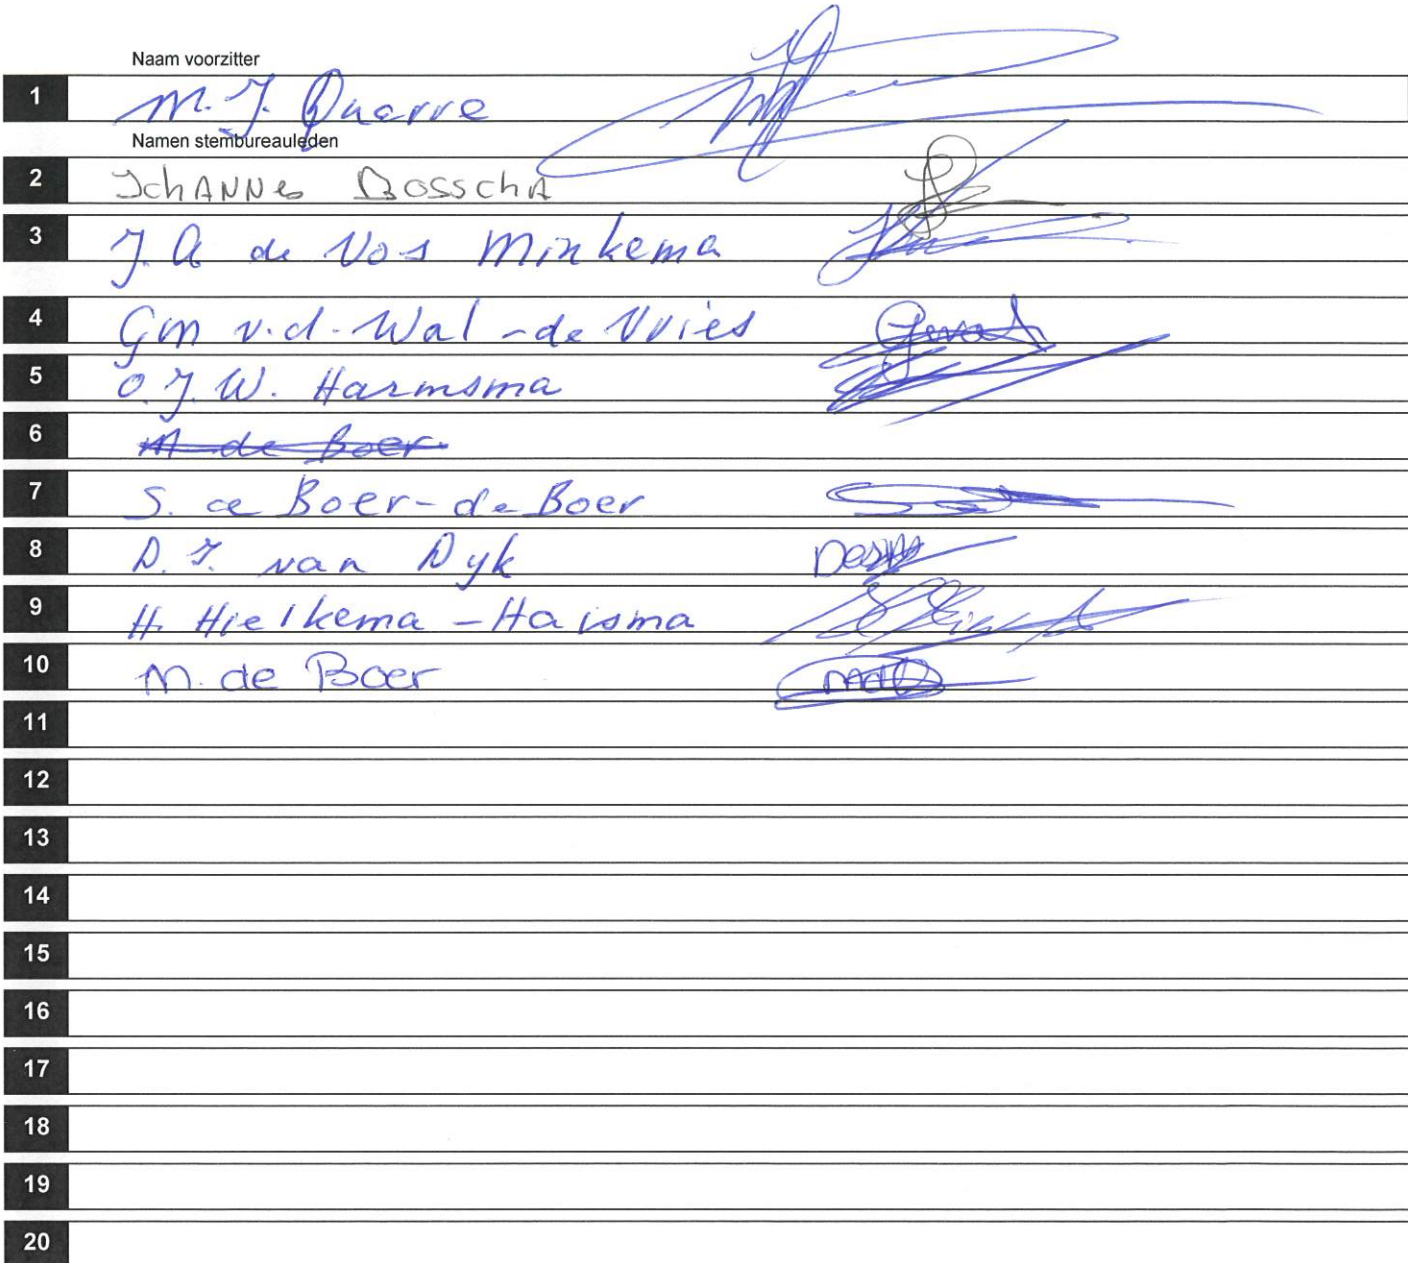 Naam voorzitter
1 M. J. Quarre
Namen stembureauleden
2 JohANNes BosschA
3 J. A de Vos Minkema
4 Gm v.d. Wal - de Vries
5 O. J. W. Harmsma
6 M de Boer
7 S. de Boer - de Boer
8 D. J. van Dyk
9 H. Hielkema - Haisma
10 M. de Boer
11
12
13
14
15
16
17
18
19
20